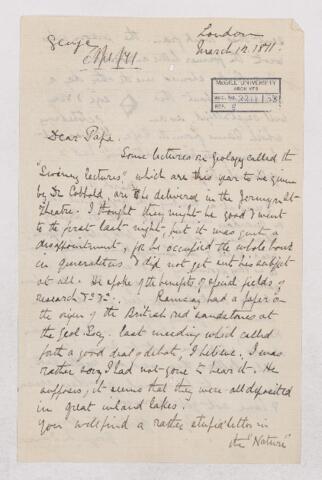 George
London
March 12 1871
McGILL UNIVERSITY
ARCHIVES
ACC. NO.
REF.
Dear Papa.
Some lectures on Geology called the
"Swiney lectures", which are this year to be given
by Dr Cobbold, are delivered in the Jermyn St
Theatre. I thought they might be good & went
to the first last night, but it was quit a
disappointment, for he occupied the whole hour
in generalities & did not get into his subject
at all. He spoke of the benefits of special fields of
research &c &c. Ramsay had a paper on
the origin of the British red sandstones at
the Geol. Soc. last meeting which called
forth a good deal of debate, I believe. I was
rather sorry I had not gone to hear it. He
supposes, it seems that they were all deposited
in great inland lakes.
You will find a rather stupid letter in
the "Nature"